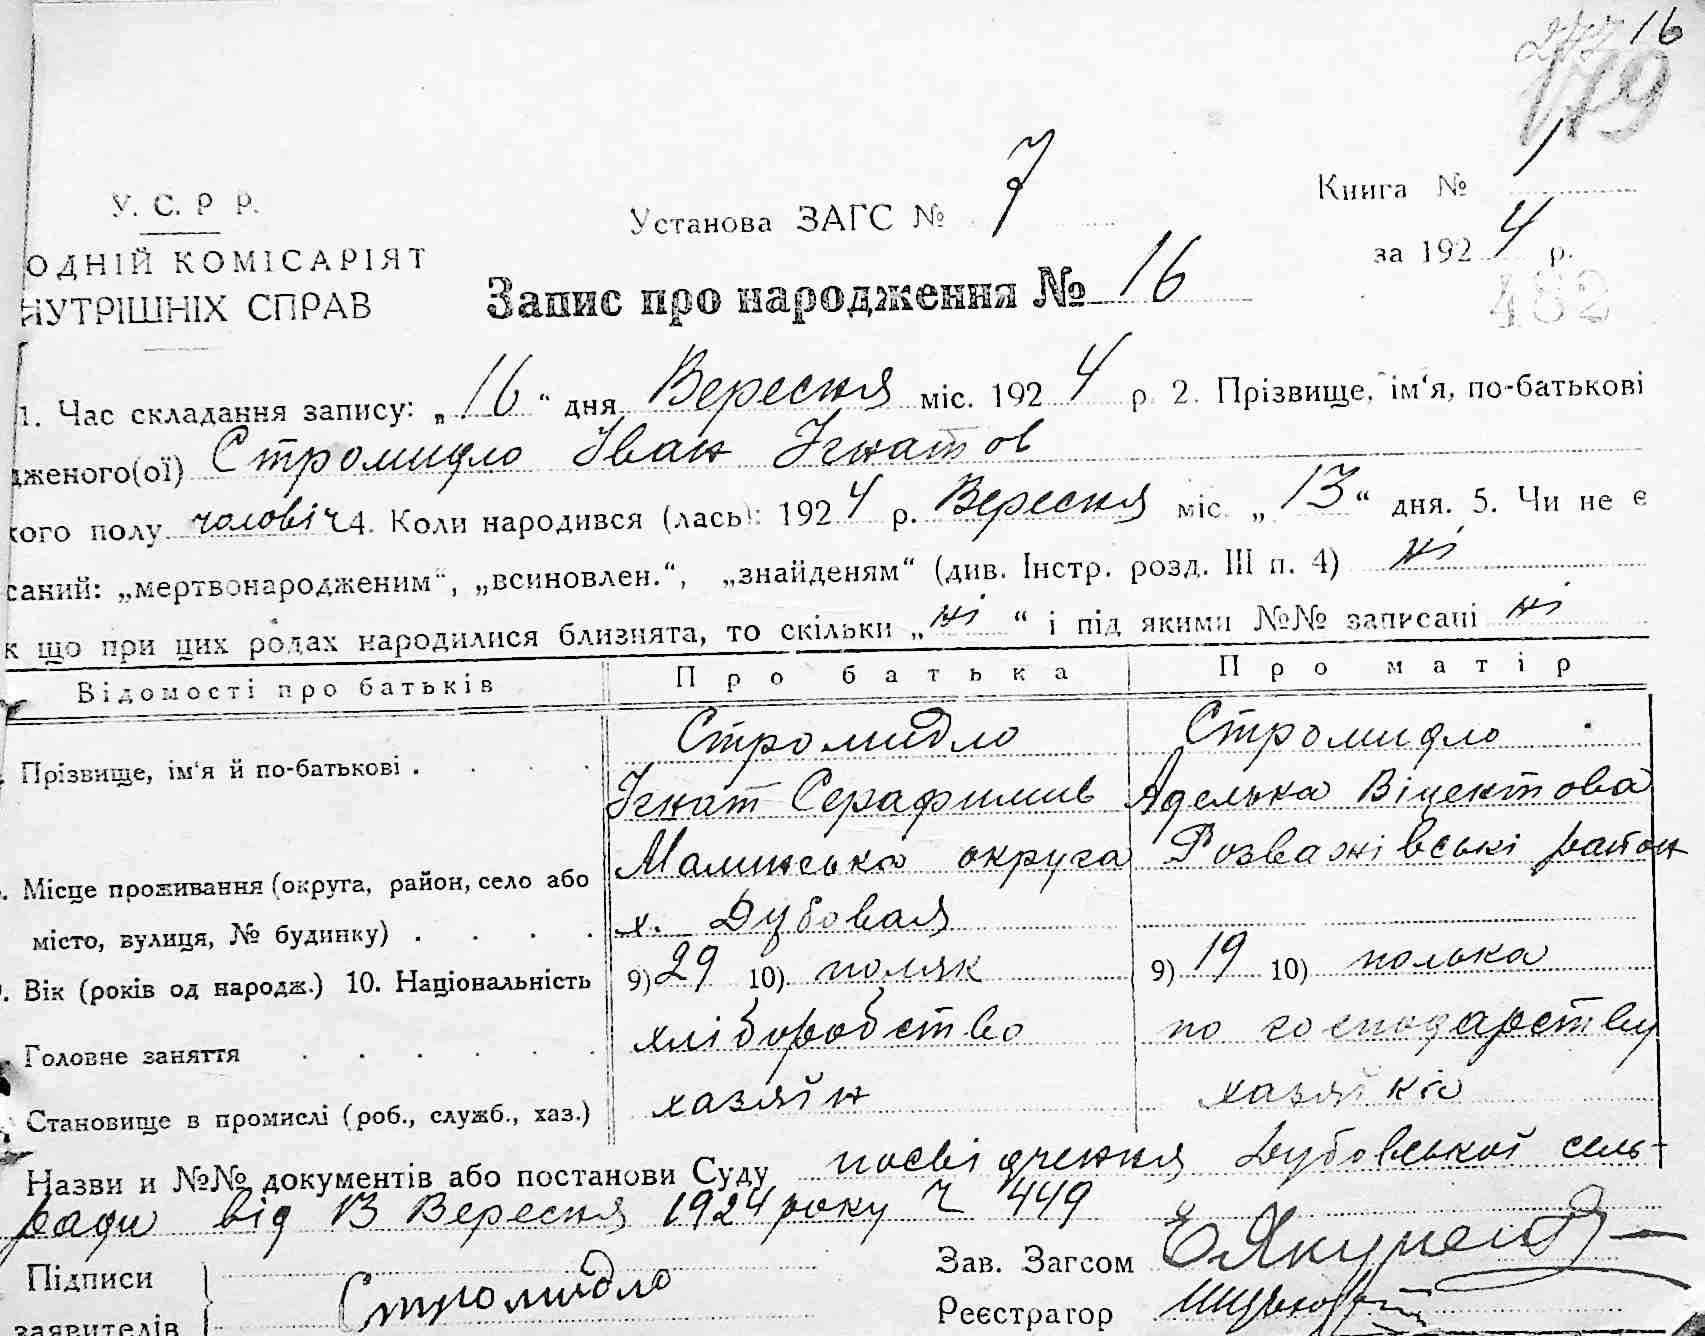 16
179
У. С. Р Р.
Установа ЗАГС № 7
Книга № 1
ОДНІЙ КОМІСАРІЯТ
за 1924 р.
НУТРІШНІХ СПРАВ
Запис про народження № 16
482
1. Час складання запису: „16“ дня Вересня міс. 1924 р. 2. Прізвище, ім'я, по-батькові
дженого(ої) Стромидло Іван Ігнатов
кого полу чоловіч 4. Коли народився (лась): 1924 р. Вересня міс. „13“ дня. 5. Чи не є
саний: „мертвонародженим“, „всиновлен.“, „знайденям“ (див. Інстр. розд. III п. 4) ні
к що при цих родах народилися близнята, то скільки „ні“ і під якими №№ записані ні
Відомості про батьків Про батька Про матір
Стромидло Стромидло
Прізвище, ім'я й по-батькові . . . .
Ігнат Серафимив Аделька Віцентова
Малинська округа Розважівські район
Місце проживання (округа, район, село або
місто, вулиця, № будинку) . . . . х. Дубовая
Вік (років од народж.) 10. Національність 9) 29 10) поляк 9) 19 10) полька
Головне заняття . . . . . . хліборобство по господарству
Становище в промислі (роб., служб., хаз.) хазяйн хазяйка
Назви и №№ документів або постанови Суду посвідчення Дубовської сель-
ради від 13 Вересня 1924 року Ч 449
Підписи
заявителів
Стромидло
Зав. Загсом
Реєстратор